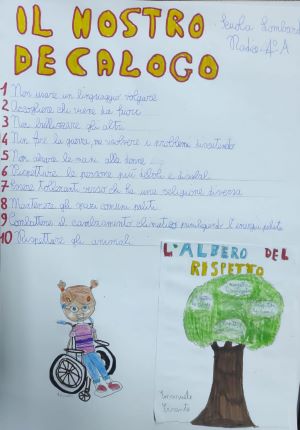 IL NOSTRO
DECALOGO
Scuola Lombardo
Radice 4ª A
1 Non usare un linguaggio volgare
2 Accogliere chi viene da fuori
3 Non bullizzare gli altri
4 Non fare la guerra, ma risolvere i problemi discutendo
5 Non alzare le mani alle donne
6 Rispettare le persone più deboli e disabili
7 Essere tolleranti verso chi ha una religione diversa
8 Mantenere gli spazi comuni puliti
9 Combattere il cambiamento climatico privilegiando l'energia pulita
10 Rispettare gli animali
L'ALBERO DEL
RISPETTO
Emanuele